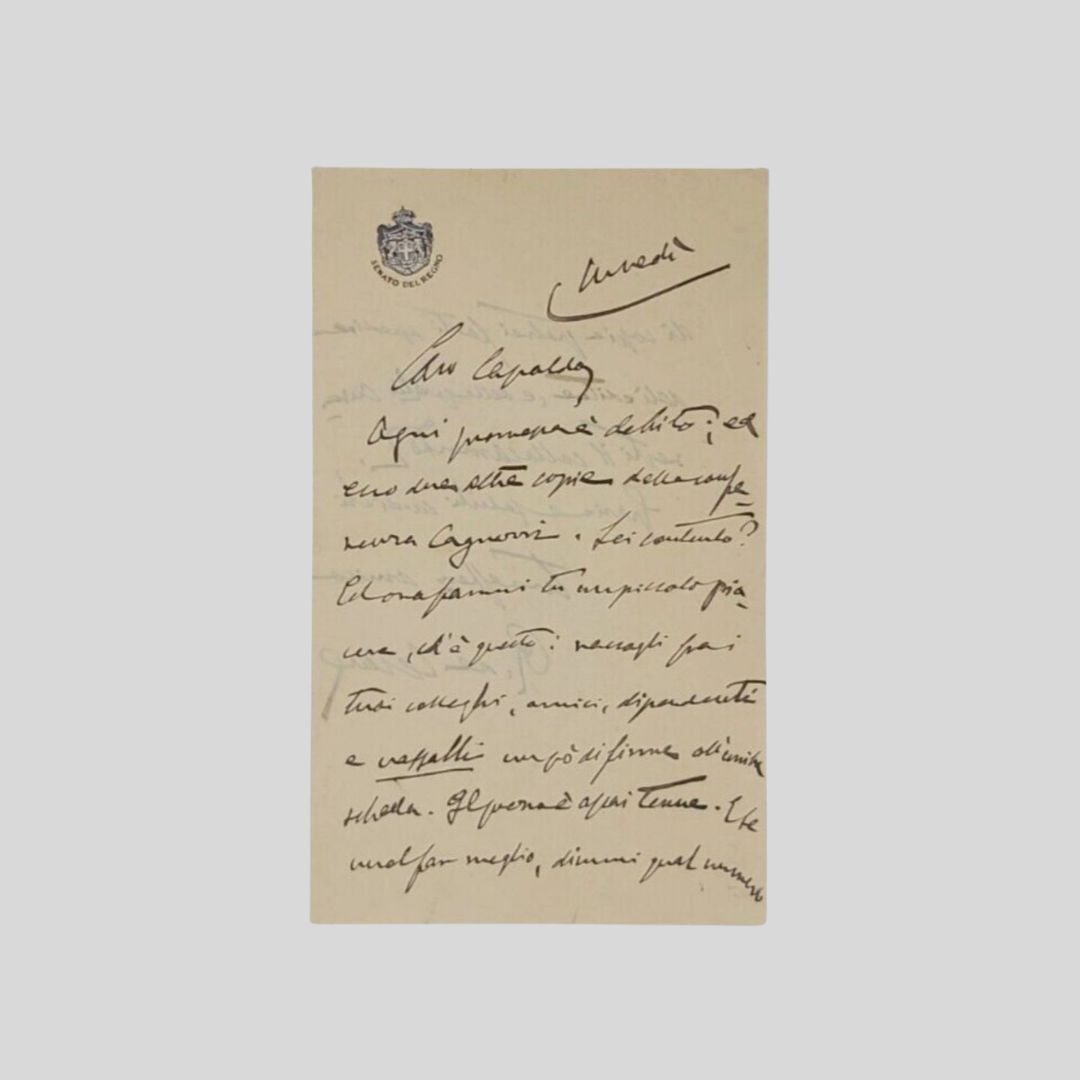 SENATO DEL REGNO
Caro Capaldo,
Ogni promessa è debito; ed
ecco due altre copie della confe-
renza Cagnazzi. Sei contento?
Ed ora fammi tu un piccolo pia-
cere, ch'è questo: raccogli fra i
tuoi colleghi, amici, dipendenti
e vassalli un pò di firme all'unita
scheda. Il prezzo è assai tenue. E se
vuol far meglio, dimmi qual numero